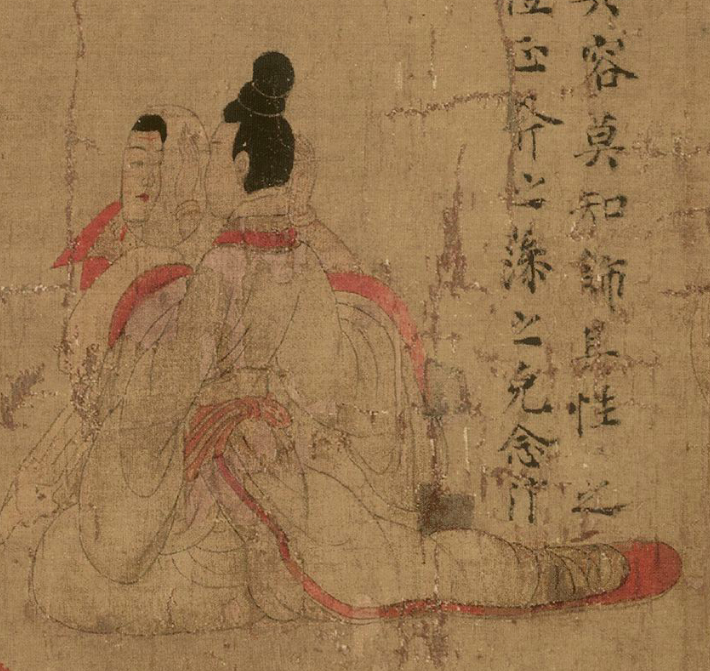 其容莫知飾其性〻之
禮正斧之藻之克念作